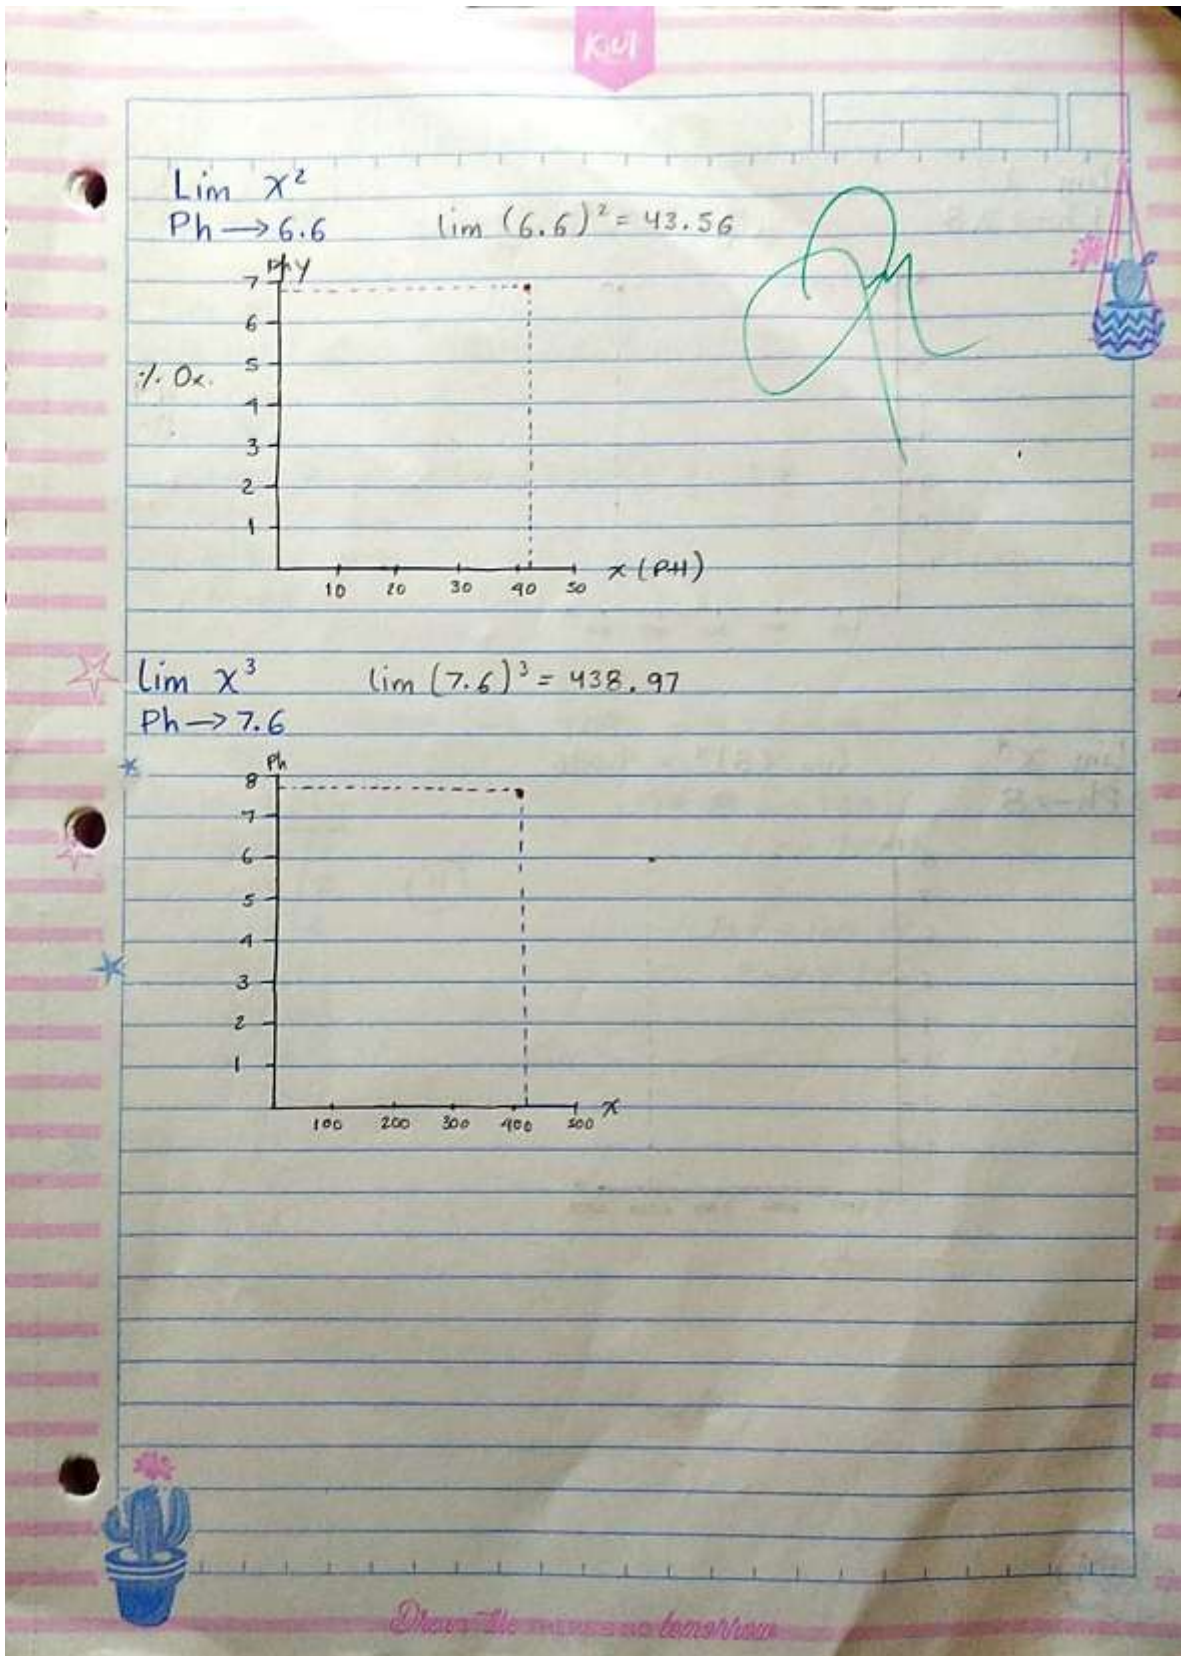 KIUI
Lim x²
Ph → 6.6
lim (6.6)² = 43.56
Ph y
7
6
5
% Ox.
4
3
2
1
10 20 30 40 50
x (PH)
Lim x³
lim (7.6)³ = 438.97
Ph → 7.6
Ph
8
7
6
5
4
3
2
1
100 200 300 400 500
x
tomorrow